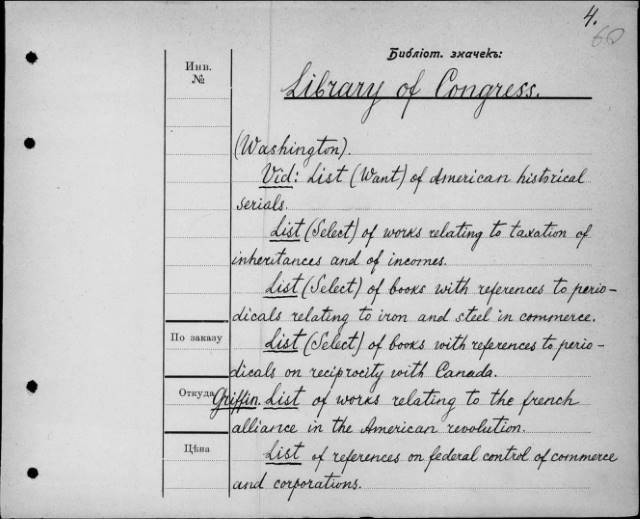 4.
60
Библіот. значекъ:
Инв.
№
Library of Congress.
(Washington).
Vid: List (Want) of American historical
serials.
List (Select) of works relating to taxation of
inheritances and of incomes.
List (Select) of books with references to perio-
dicals relating to iron and steel in commerce.
По заказу
List (Select) of books with references to perio-
dicals on reciprocity with Canada.
Откуда
Griffin. List of works relating to the french
alliance in the American revolution.
Цѣна
List of references on federal control of commerce
and corporations.